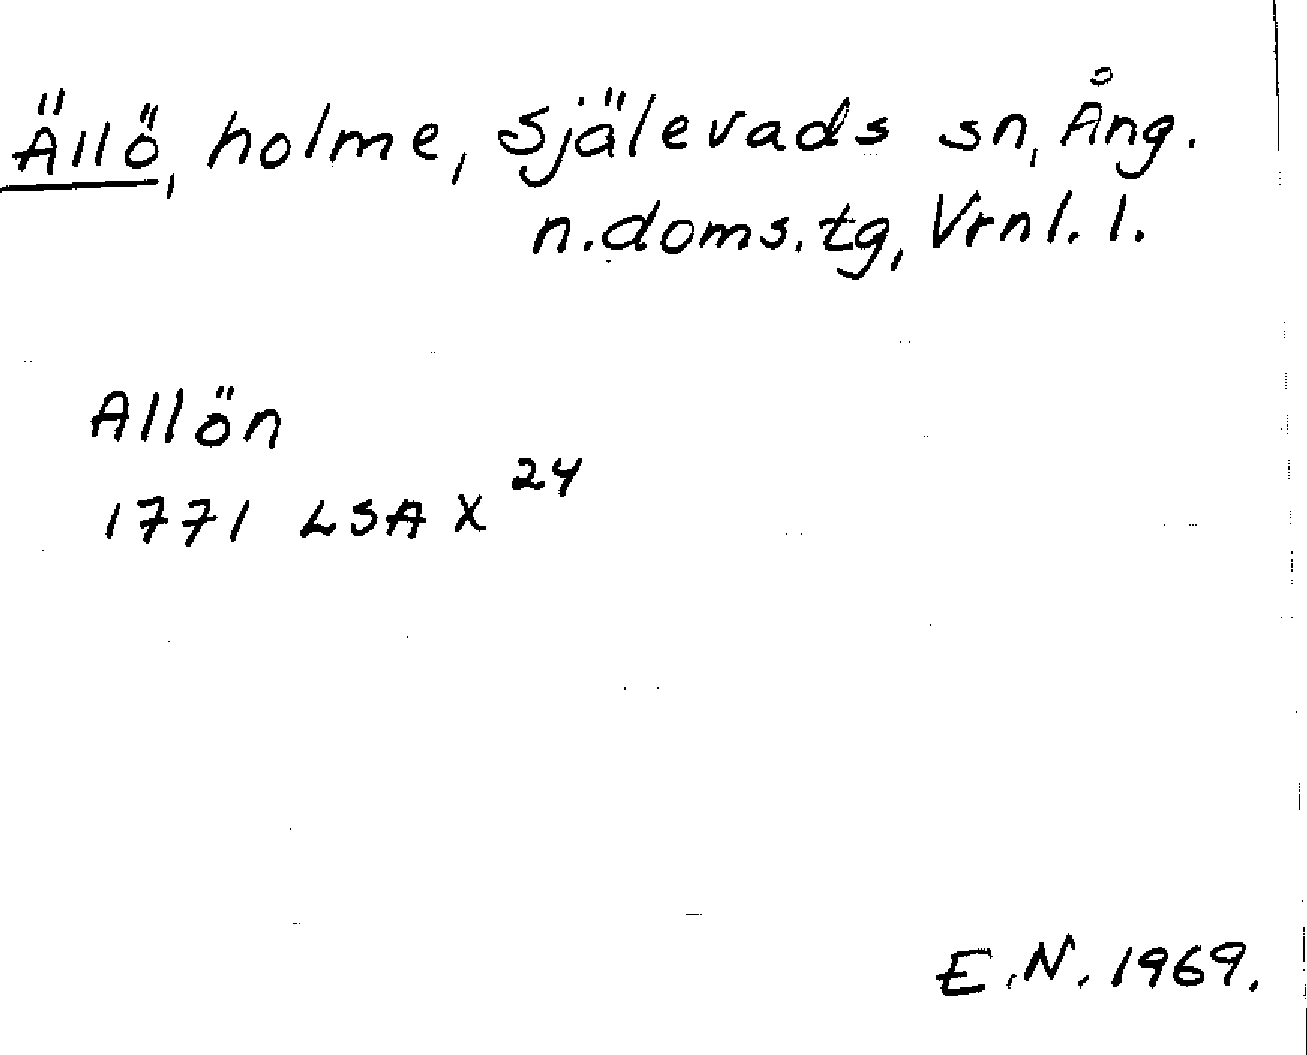 Ällö, holme, Själevads sn, Ång.
n.doms.tg, Vrnl. l.
Allön
1771 LSA X 24
E.N. 1969.